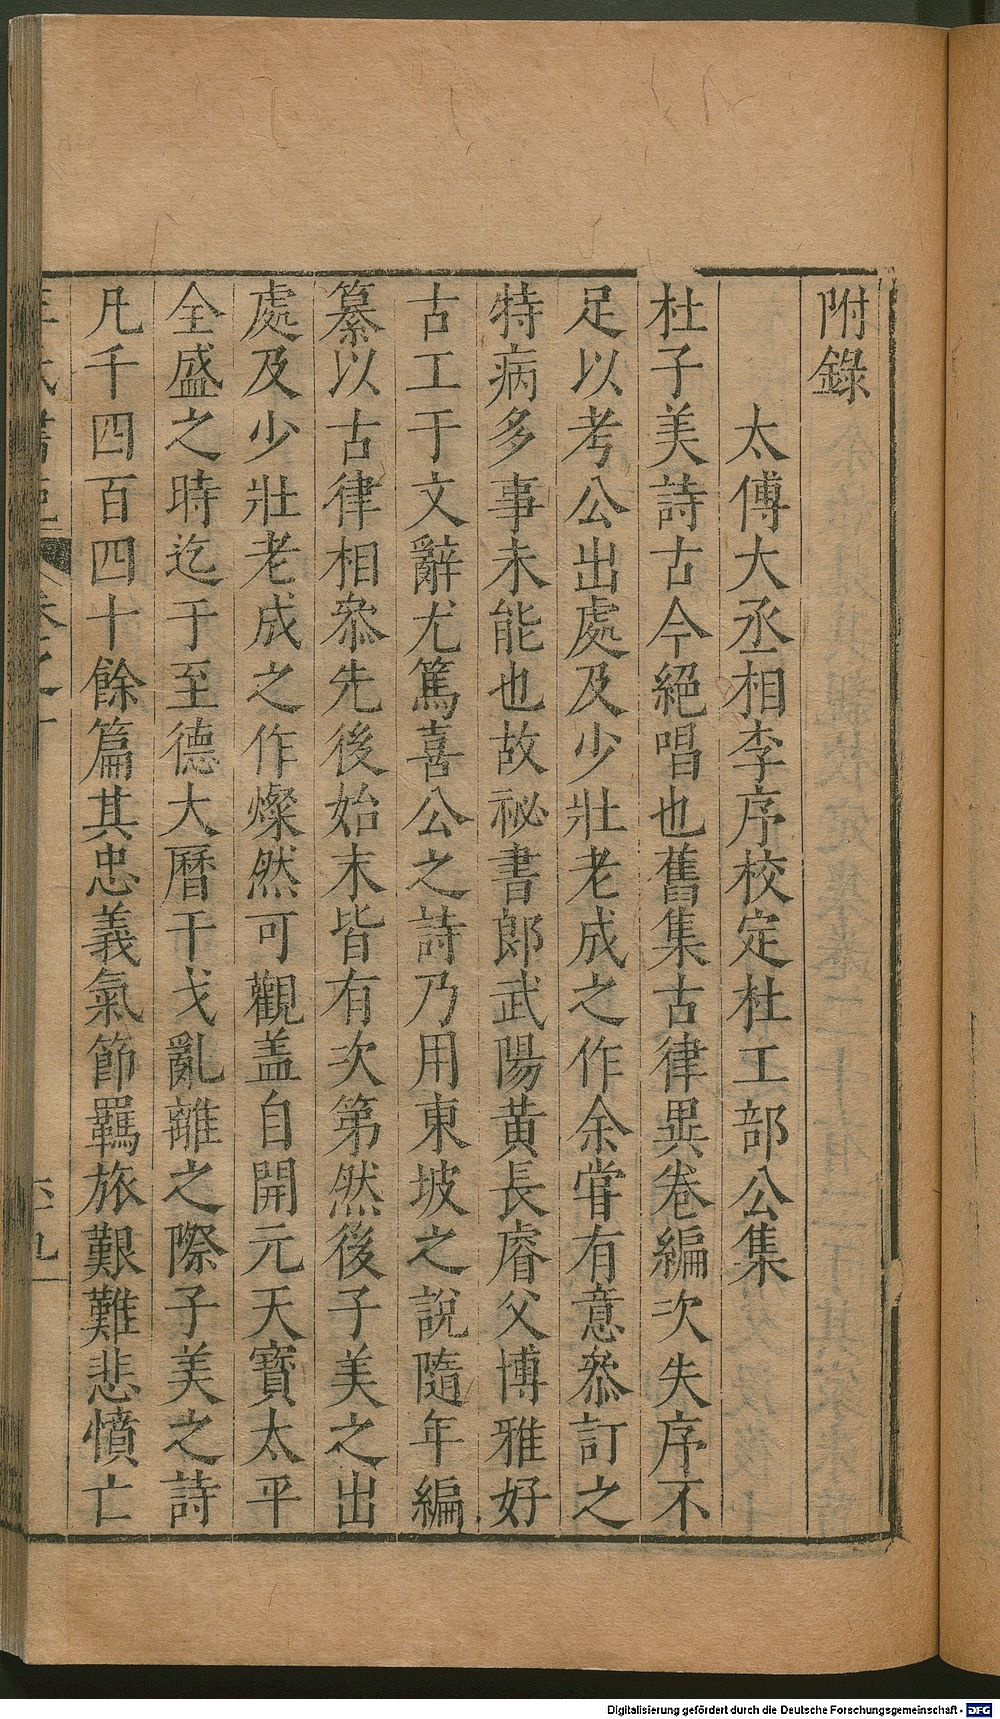 附錄
太傅大丞相李序校定杜工部公集
杜子美詩古今絕唱也舊集古律異卷編次失序不
足以考公出處及少壯老成之作余甞有意叅訂之
特病多事未能也故祕書郎武陽黃長睿父博雅好
古工于文辭尤篤喜公之詩乃用東坡之說隨年編
纂以古律相叅先後始末皆有次第然後子美之出
處及少壯老成之作燦然可觀盖自開元天寶太平
全盛之時迄于至德大曆干戈亂離之際子美之詩
凡千四百四十餘篇其忠義氣節羈旅艱難悲憤亡
Digitalisierung gefördert durch die Deutsche Forschungsgemeinschaft - DFG